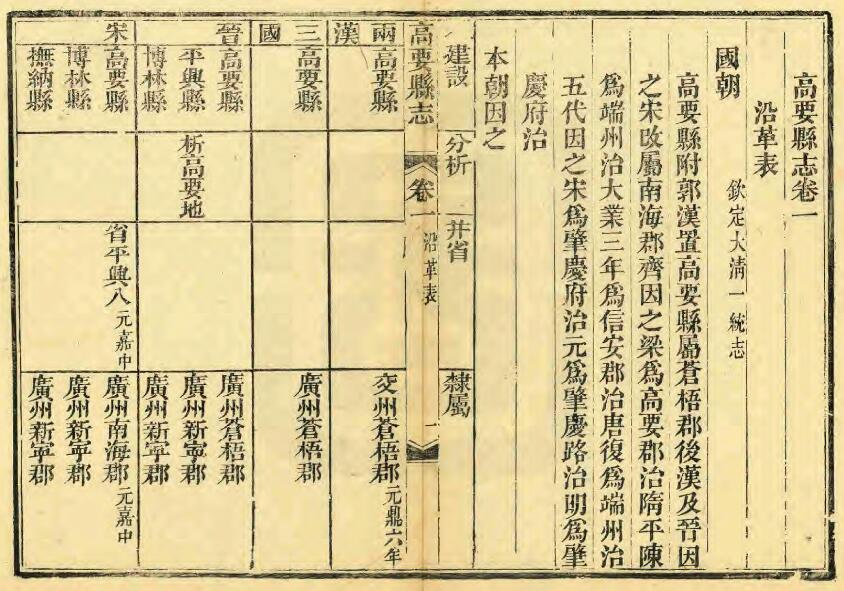 高要縣志卷一
沿革表
國朝
欽定大淸一統志
高要縣附郭漢置高要縣屬蒼梧郡後漢及晉因
之宋改屬南海郡齊因之梁爲高要郡治隋平陳
爲端州治大業三年爲信安郡治唐復爲端州治
五代因之宋爲肇慶府治元爲肇慶路治明爲肇
慶府治
本朝因之
建設
分析
并省
隸屬
高要縣志
卷一
沿革表
一
兩漢
高要縣
交州蒼梧郡元鼎六年
三國
高要縣
廣州蒼梧郡
晉
高要縣
廣州蒼梧郡
平興縣
析高要地
廣州新寧郡
博林縣
廣州新寧郡
宋
高要縣
省平興入元嘉中
廣州南海郡元嘉中
博林縣
廣州新寧郡
撫納縣
廣州新寧郡